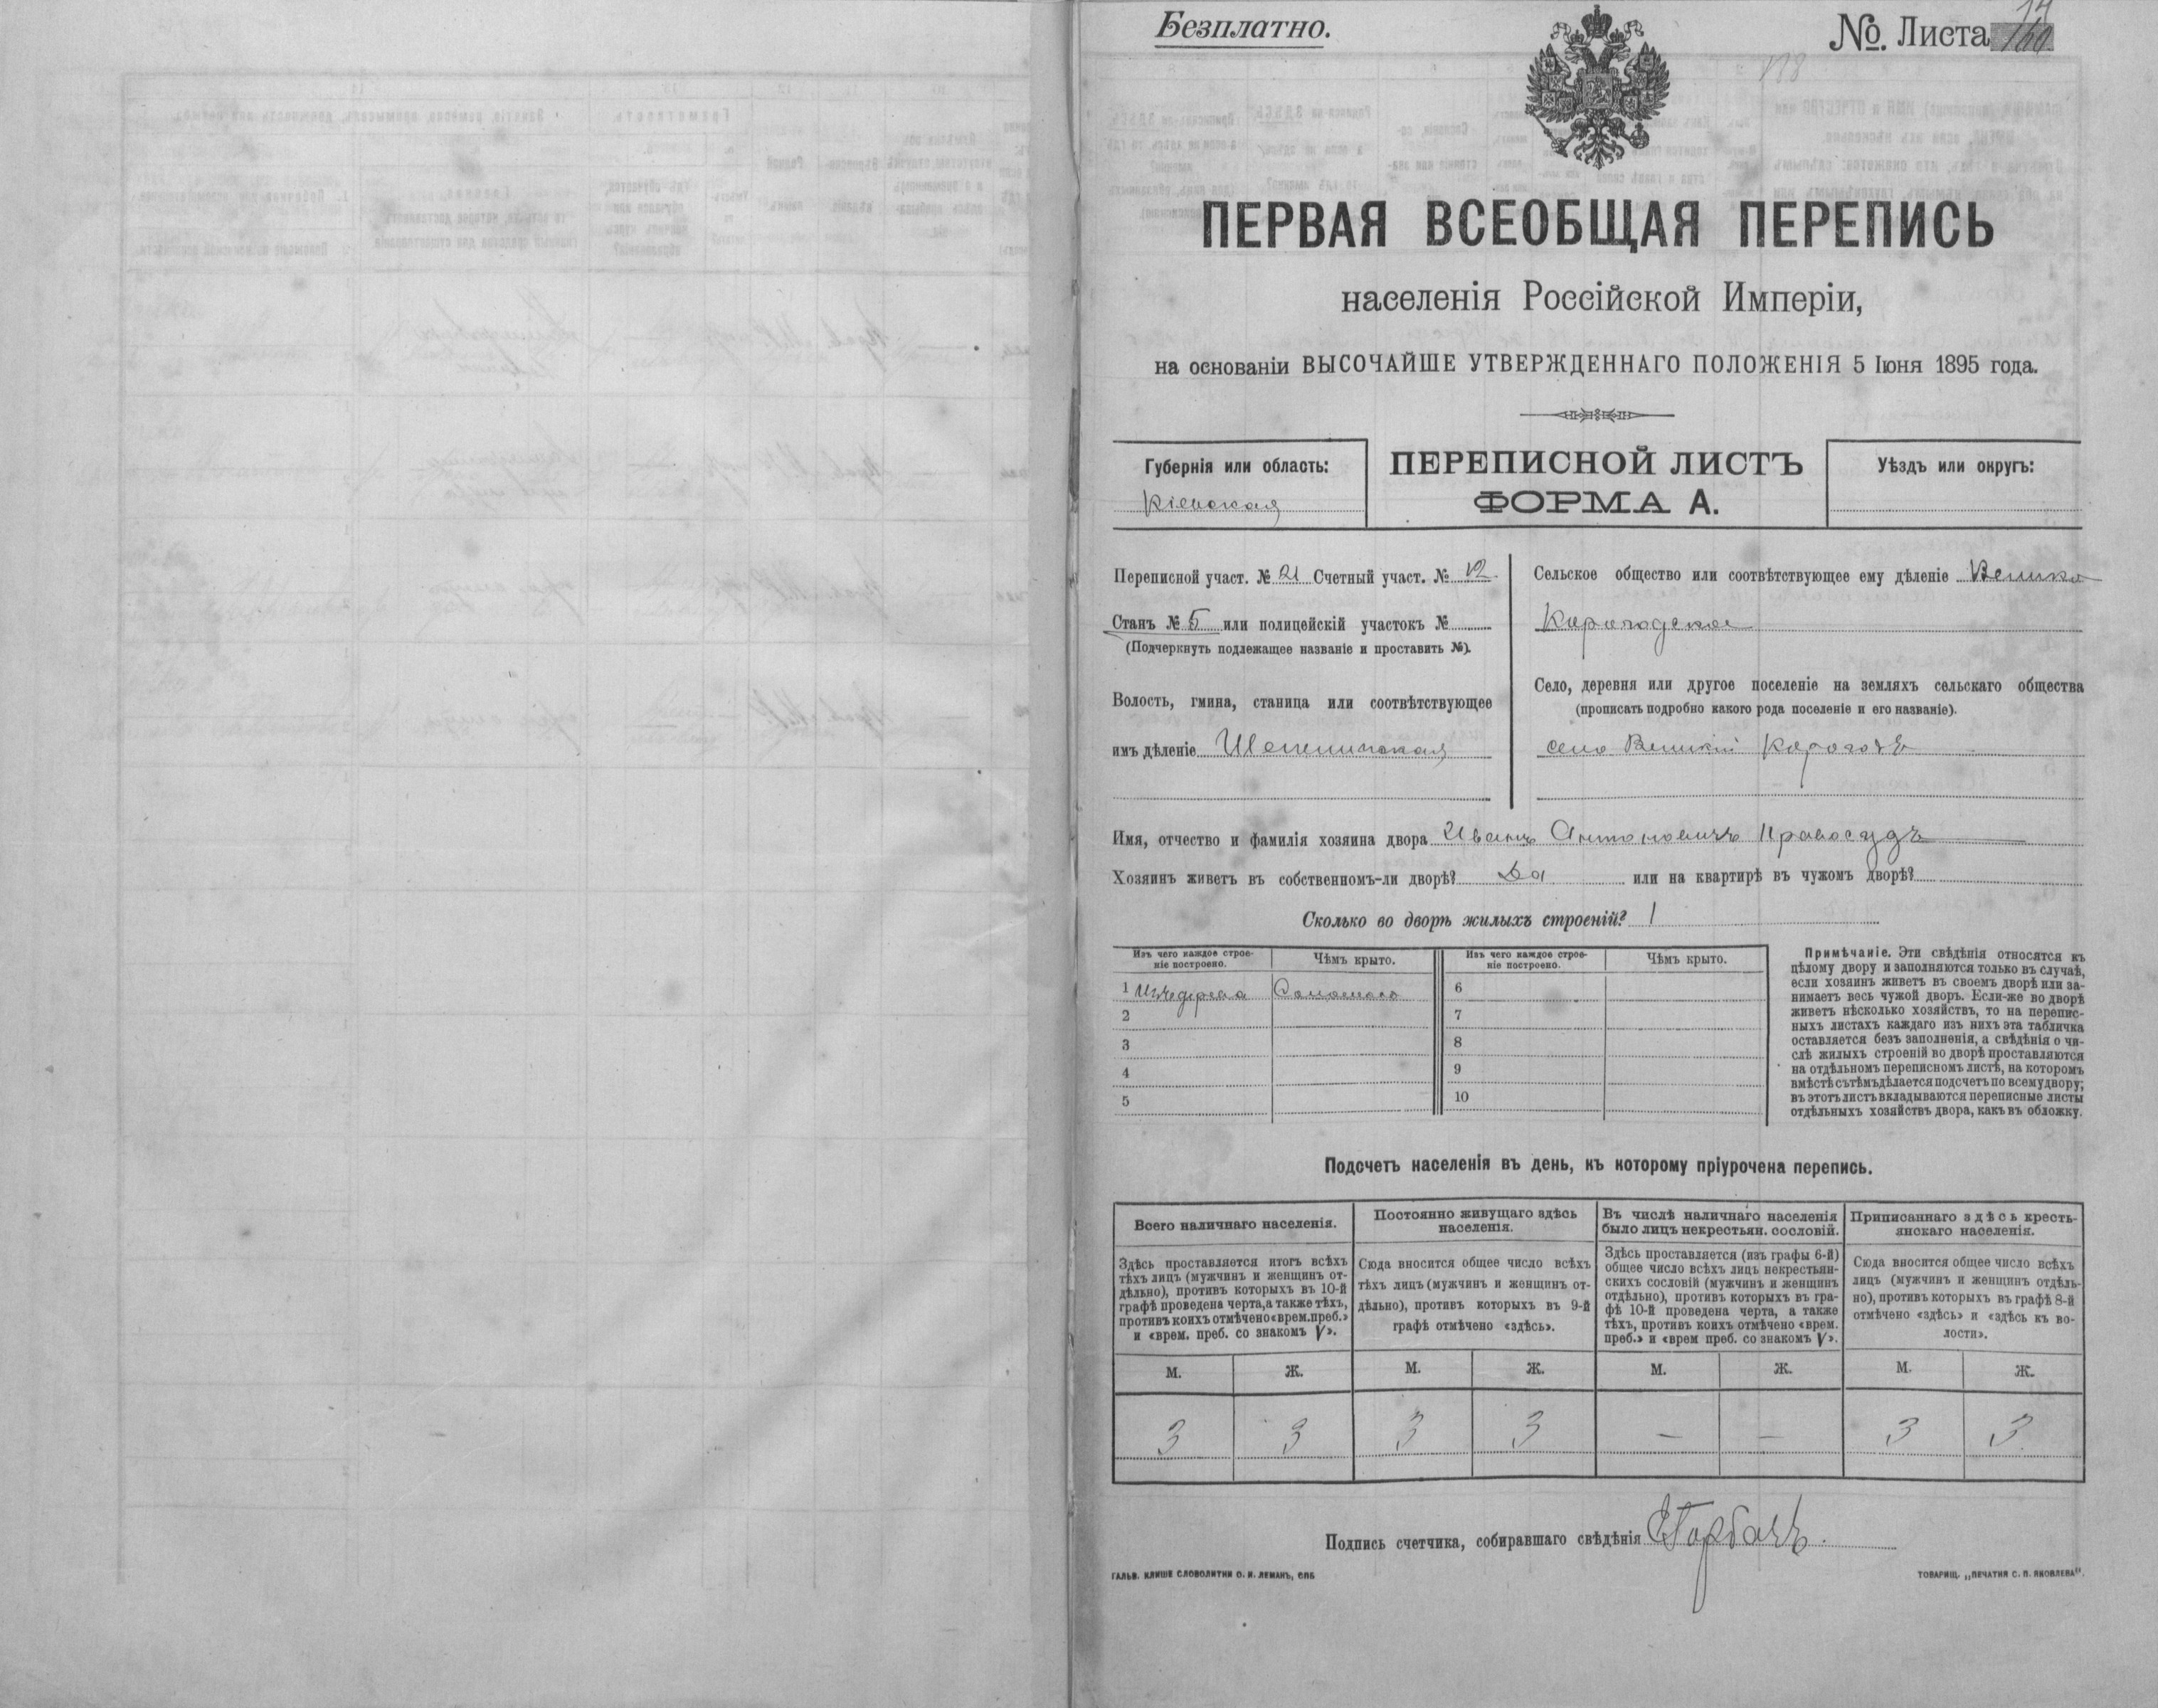 Безплатно.
№ Листа
ПЕРВАЯ ВСЕОБЩАЯ ПЕРЕПИСЬ
населенія Россійской Имперіи,
на основаніи ВЫСОЧАЙШЕ УТВЕРЖДЕННАГО ПОЛОЖЕНІЯ 5 Іюня 1895 года.
Губернія или область:
Кіевская
ПЕРЕПИСНОЙ ЛИСТЪ
ФОРМА А.
Уѣздъ или округъ:
Переписной участ. № 21 Счетный участ. № 12
Станъ № 5 или полицейскій участокъ №
(Подчеркнуть подлежащее названіе и проставить №).
Волость, гмина, станица или соотвѣтствующее
имъ дѣленіе Шепеличская
Сельское общество или соотвѣтствующее ему дѣленіе Велико
Корогодское
Село, деревня или другое поселеніе на земляхъ сельскаго общества
(прописать подробно какого рода поселеніе и его названіе).
село Великій Корогодъ
Имя, отчество и фамилія хозяина двора Иванъ Антоновичъ Правосудъ
Хозяинъ живетъ въ собственномъ-ли дворѣ? Да или на квартирѣ въ чужомъ дворѣ?
Сколько во дворѣ жилыхъ строеній? 1
Изъ чего каждое строе-
ніе построено.
Чѣмъ крыто.
Изъ чего каждое строе-
ніе построено.
Чѣмъ крыто.
1 Изъ дерева Соломою 6
2 7
3 8
4 9
5 10
Примѣчаніе. Эти свѣдѣнія относятся къ
цѣлому двору и заполняются только въ случаѣ,
если хозяинъ живетъ въ своемъ дворѣ или за-
нимаетъ весь чужой дворъ. Если-же во дворѣ
живетъ нѣсколько хозяйствъ, то на перепис-
ныхъ листахъ каждаго изъ нихъ эта табличка
оставляется безъ заполненія, а свѣдѣнія о чи-
слѣ жилыхъ строеній во дворѣ проставляются
на отдѣльномъ переписномъ листѣ, на которомъ
вмѣстѣ съ тѣмъ дѣлается подсчетъ по всему двору;
въ этотъ листъ вкладываются переписные листы
отдѣльныхъ хозяйствъ двора, какъ въ обложку.
Подсчетъ населенія въ день, къ которому пріурочена перепись.
Всего наличнаго населенія.
Здѣсь проставляется итогъ всѣхъ
тѣхъ лицъ (мужчинъ и женщинъ от-
дѣльно), противъ которыхъ въ 10-й
графѣ проведена черта, а также тѣхъ,
противъ коихъ отмѣчено «врем. преб.»
и «врем. преб. со знакомъ V».
Постоянно живущаго здѣсь
населенія.
Сюда вносится общее число всѣхъ
тѣхъ лицъ (мужчинъ и женщинъ от-
дѣльно), противъ которыхъ въ 9-й
графѣ отмѣчено «здѣсь».
Въ числѣ наличнаго населенія
было лицъ некрестьян. сословій.
Здѣсь проставляется (изъ графы 6-й)
общее число всѣхъ лицъ некрестьян-
скихъ сословій (мужчинъ и женщинъ
отдѣльно), противъ которыхъ въ гра-
фѣ 10-й проведена черта, а также
тѣхъ, противъ коихъ отмѣчено «врем.
преб.» и «врем преб. со знакомъ V».
Приписаннаго здѣсь кресть-
янскаго населенія.
Сюда вносится общее число всѣхъ
лицъ (мужчинъ и женщинъ отдѣль-
но), противъ которыхъ въ графѣ 8-й
отмѣчено «здѣсь» и «здѣсь къ во-
лости».
М. Ж. М. Ж. М. Ж. М. Ж.
3 3 3 3 — — 3 3
Подпись счетчика, собиравшаго свѣдѣнія Горбачъ.
ГАЛЬВ. КЛИШЕ СЛОВОЛИТНИ О. И. ЛЕМАНЪ, СПБ
ТОВАРИЩ. „ПЕЧАТНЯ С. П. ЯКОВЛЕВА".